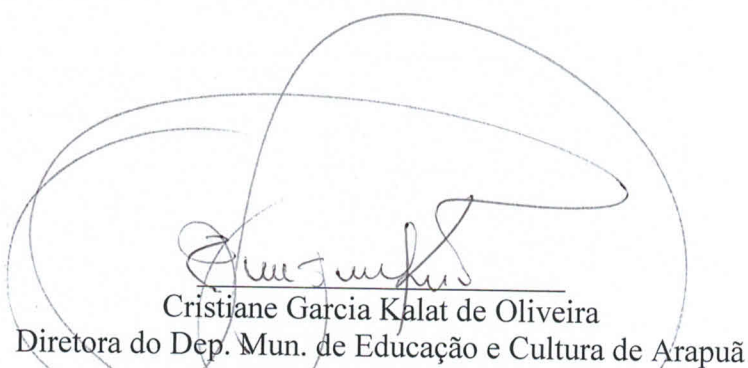 Cristiane Garcia Kalat de Oliveira
Diretora do Dep. Mun. de Educação e Cultura de Arapuã